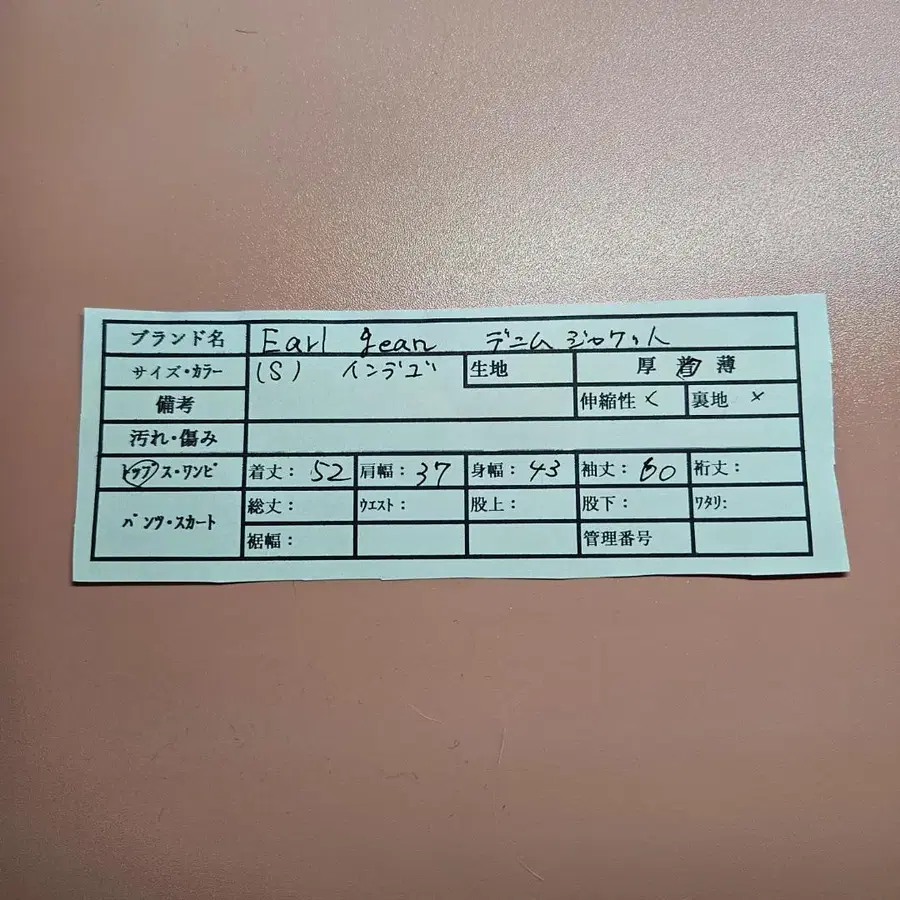 ブランド名 Earl Jean デニムジャケット
サイズ・カラー (S) インデゴ 生地 厚 普 薄
備考 伸縮性 × 裏地 ×
汚れ・傷み
トップス・ワンピ 着丈: 52 肩幅: 37 身幅: 43 袖丈: 60 裄丈:
パンツ・スカート 総丈: ウエスト: 股上: 股下: ワタリ:
裾幅: 管理番号